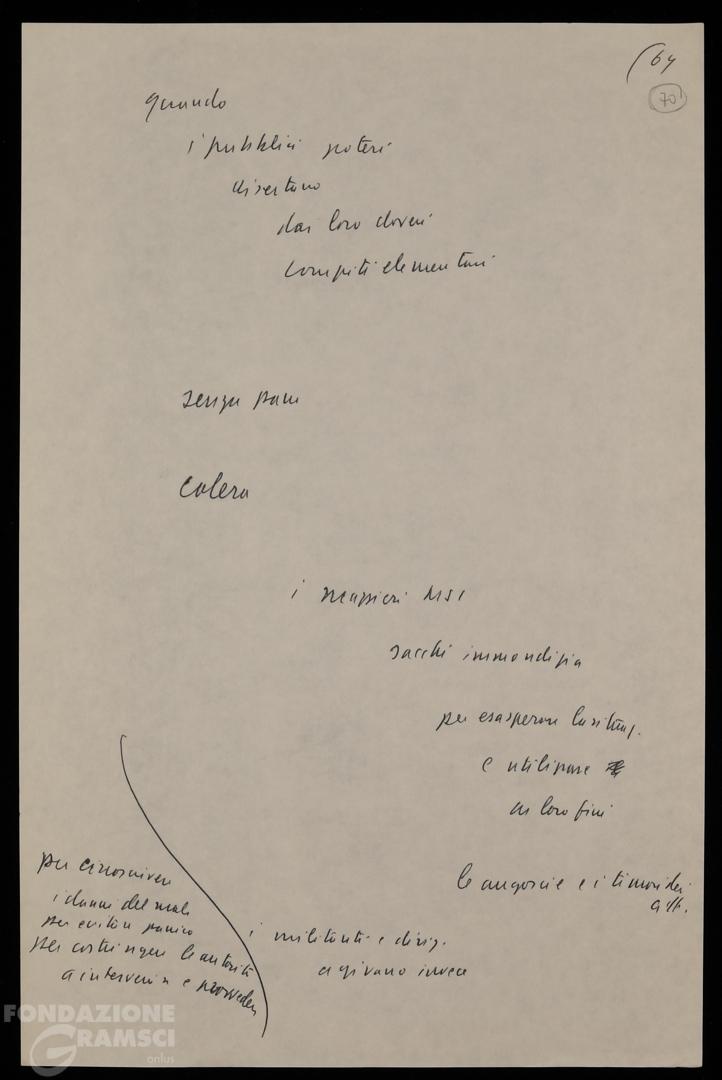 (64
70
quando
i pubblici poteri
disertano
dai loro doveri
compiti elementari
senza pane
colera
i mazzieri MSI
sacchi immondizia
per esasperare la situaz.
e utilizzare
ai loro fini
le angoscie e i timori dei
citt.
per circoscrivere
i danni del male
per evitare panico
per costringere le autorità
a intervenire e provvedere
i militanti e dirig.
agivano invece
FONDAZIONE
GRAMSCI
onlus